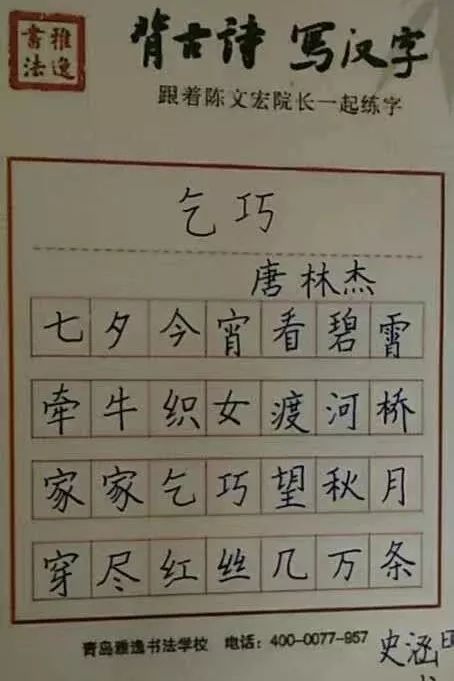 雅逸书法
背古诗 写汉字
跟着陈文宏院长一起练字
乞巧
唐 林杰
七夕今宵看碧霄
牵牛织女渡河桥
家家乞巧望秋月
穿尽红丝几万条
青岛雅逸书法学校 电话：400-0077-857
史涵